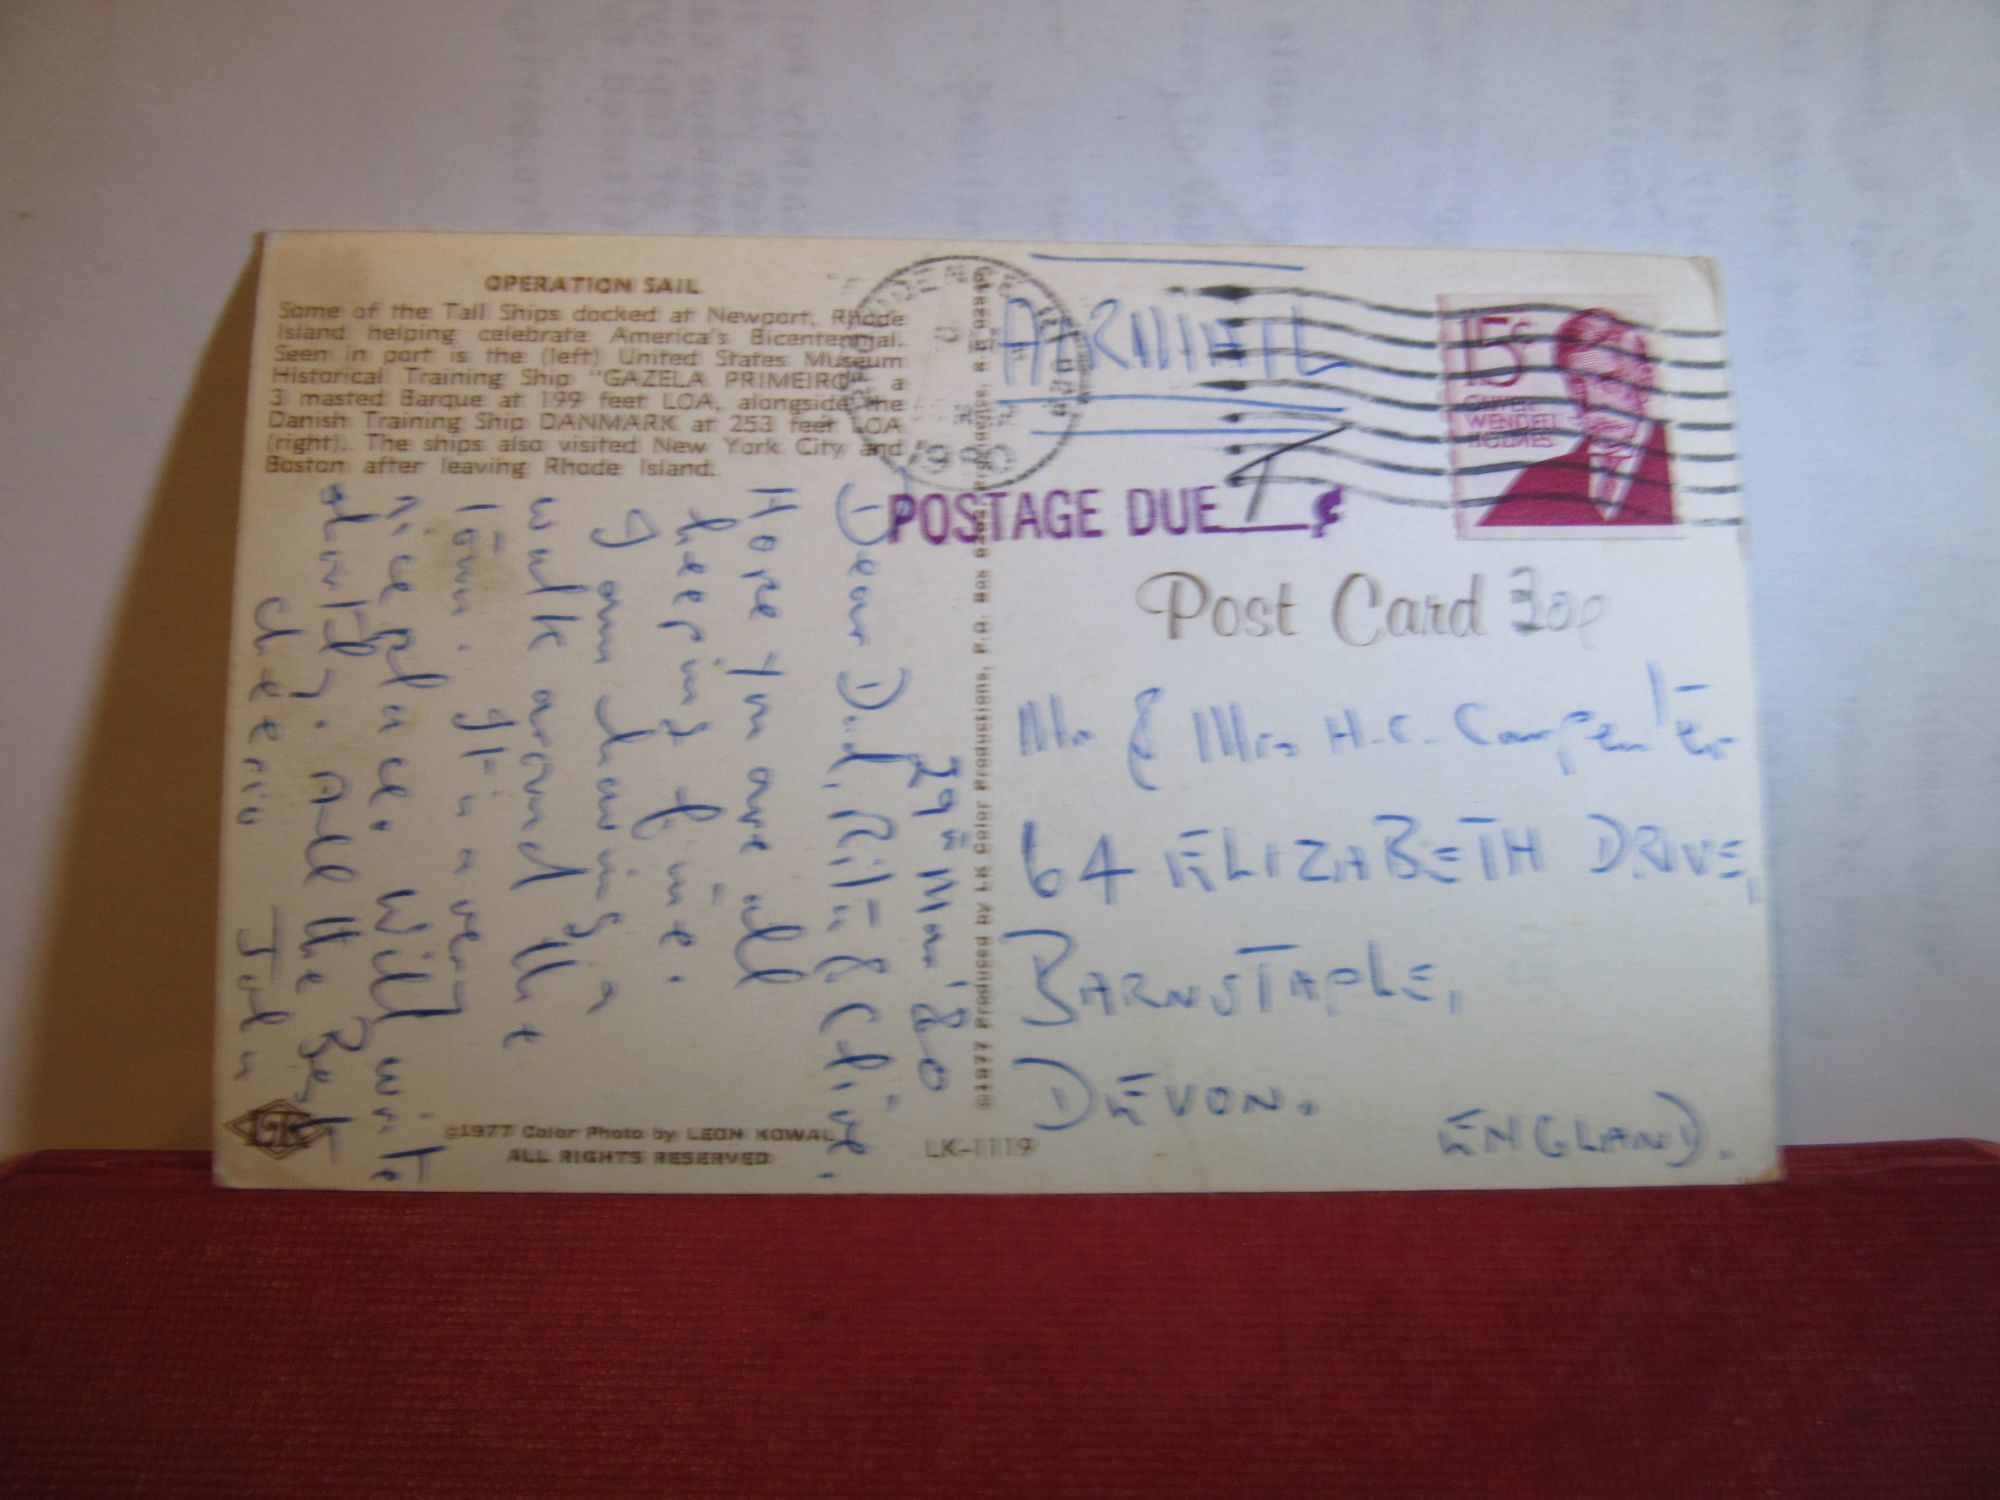 OPERATION SAIL
Some of the Tall Ships docked at Newport, Rhode
Island helping celebrate America's Bicentennial.
Seen in port is the (left) United States Museum
Historical Training Ship "GAZELA PRIMEIRO" a
3 masted Barque at 199 feet LOA, alongside the
Danish Training Ship DANMARK at 253 feet LOA
(right). The ships also visited New York City and
Boston after leaving Rhode Island.
29th Mar '80
Dear Dad, Rita & Clive,
Hope you are all
keeping fine.
I am having a
walk around the
Town. It's a very
nice place. Will write
shortly. All the Best
Cheerio John
©1977 Color Photo by LEON KOWAL
ALL RIGHTS RESERVED
LK-1119
©1977 Produced by LK Color Productions, P.O. Box
1980
AIRMAIL
15¢
OLIVER
WENDELL
HOLMES
POSTAGE DUE ¢
Post Card 30p
Mr & Mrs H.C. Carpenter
64 ELIZABETH DRIVE,
BARNSTAPLE,
DEVON.
ENGLAND.